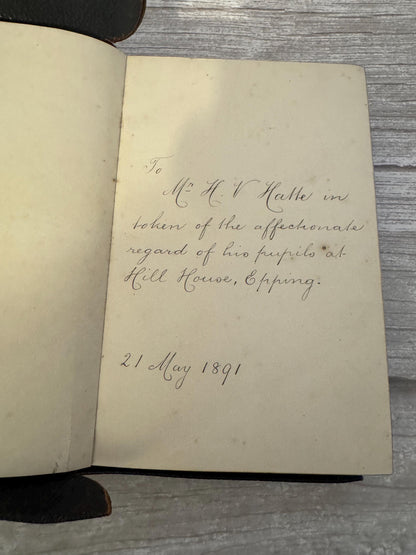 To
Mr. H. V Hatte in
token of the affectionate
regard of his pupils at
Hill House, Epping.
21 May 1891